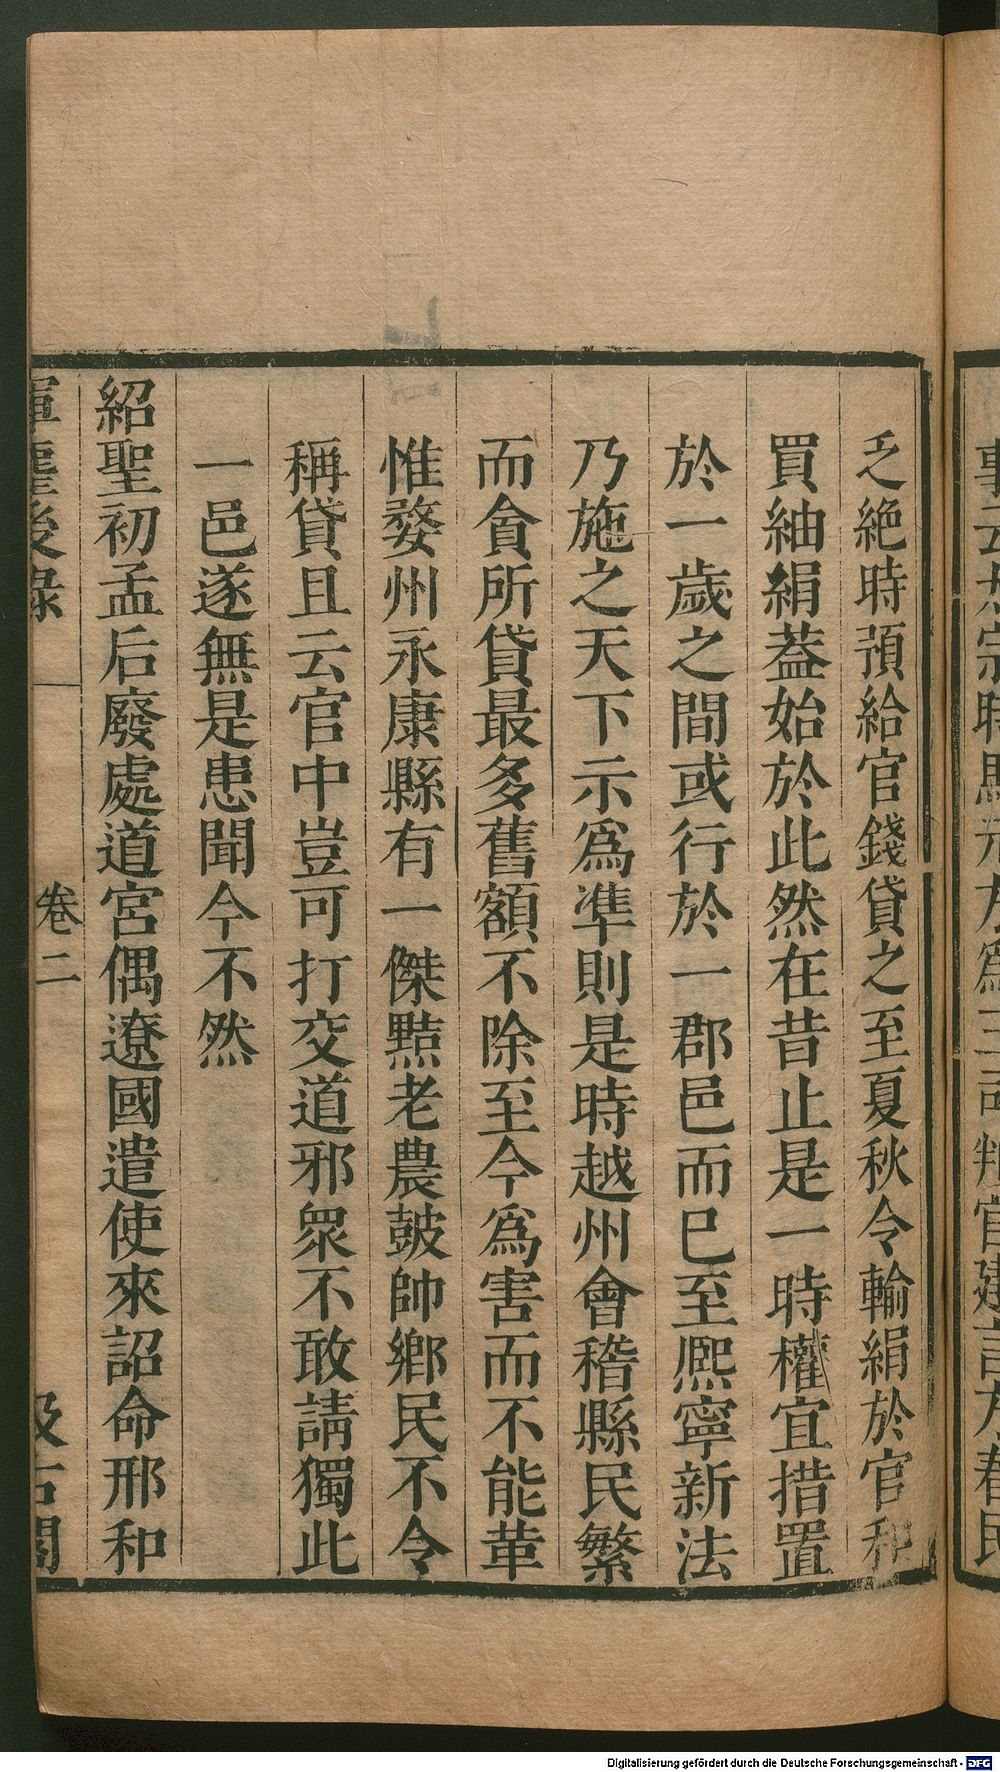 事云太宗時馬元方爲三司判官建言方春民
乏絶時預給官錢貸之至夏秋令輸絹於官和
買紬絹葢始於此然在昔止是一時權宜措置
於一歲之間或行於一郡邑而巳至熈寧新法
乃施之天下示爲凖則是時越州會稽縣民繁
而貪所貸最多舊額不除至今爲害而不能革
惟婺州永康縣有一傑黠老農鼓帥鄉民不令
稱貸且云官中豈可打交道邪眾不敢請獨此
一邑遂無是患聞今不然
紹聖初孟后廢處道宮偶遼國遣使來詔命邢和
揮麈後錄 卷二 汲古閣
Digitalisierung gefördert durch die Deutsche Forschungsgemeinschaft - DFG